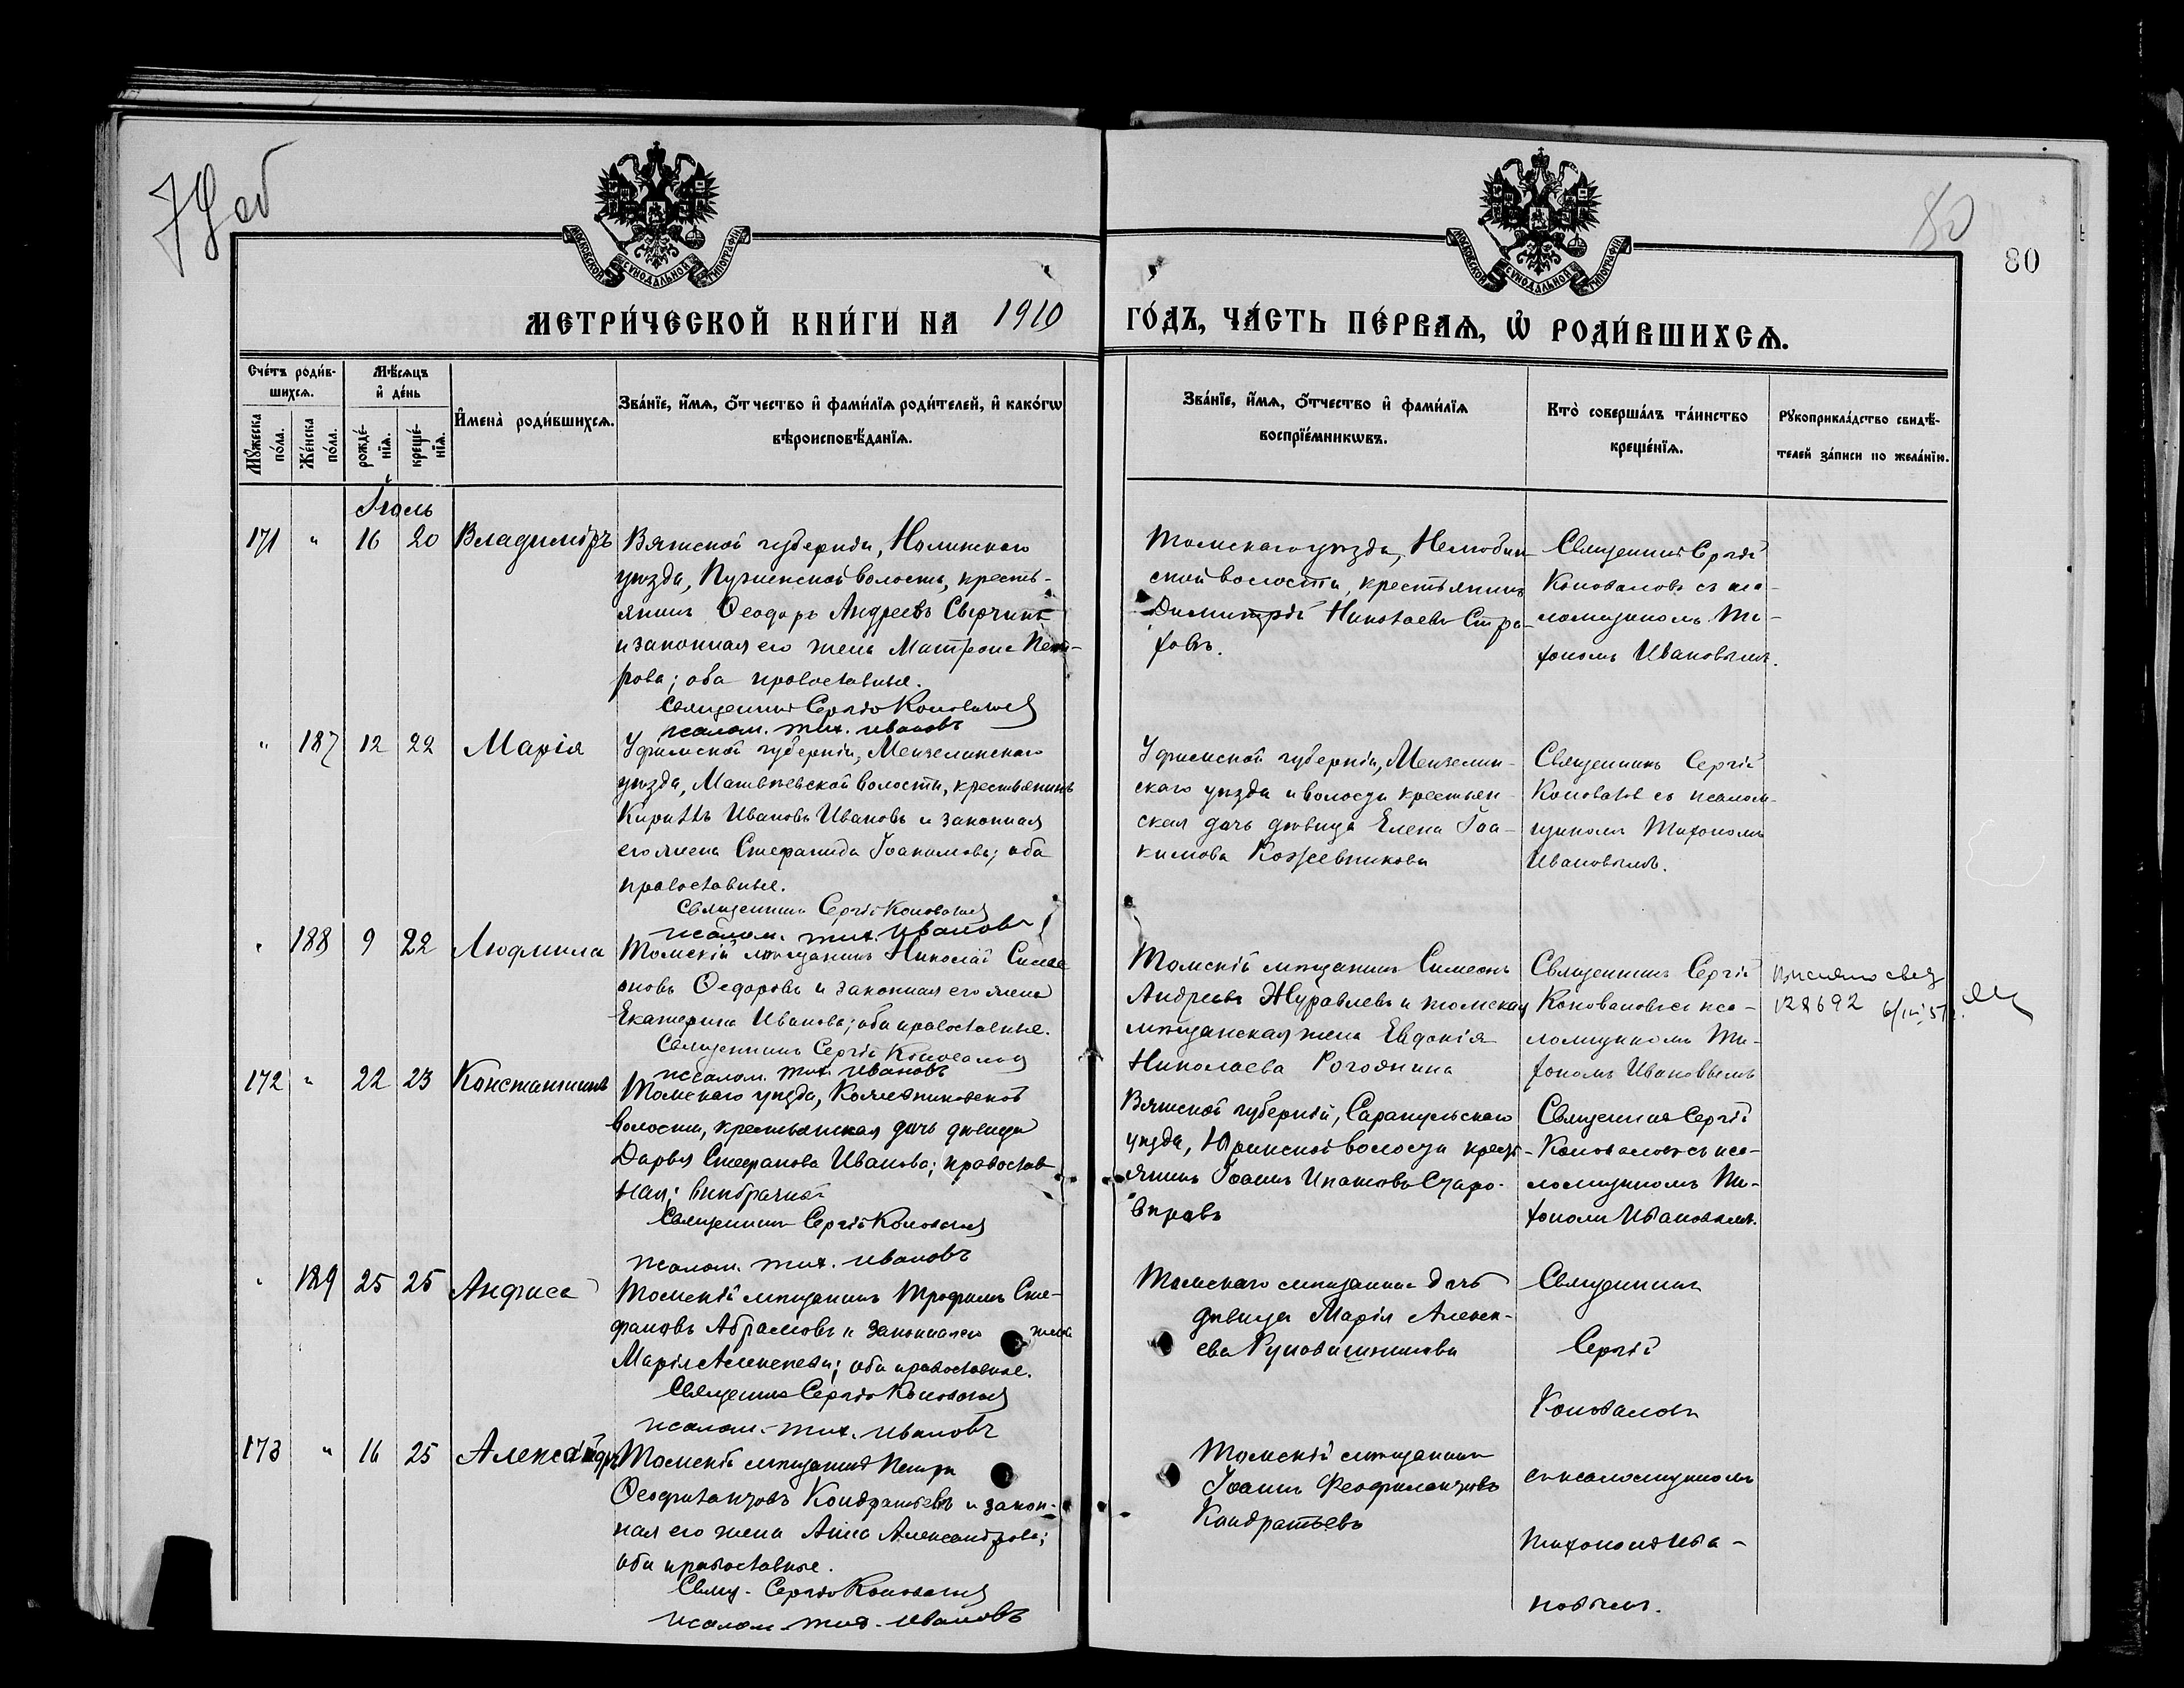 79 об
80
80
МОСКОВСКОЙ СѴНОДАЛЬНОЙ ТИПОГРАФІИ
МОСКОВСКОЙ СѴНОДАЛЬНОЙ ТИПОГРАФІИ
МЕТРИ́ЧЕСКОЙ КНИ́ГИ НА 1910 ГО́ДЪ, ЧА́СТЬ ПЕ́РВАѦ, Ѡ РОДИ́ВШИХСѦ.
Сче́тъ роди́в-
шихсѧ.
Мꙋ́жеска по́ла.
Же́нска по́ла.
Мѣ́сѧцъ
и де́нь
рожде́-
нїѧ.
креще́-
нїѧ.
Имена̀ роди́вшихсѧ.
Зва́нїе, и́мѧ, ѻ́тчество и фами́лїѧ роди́телей, и како́гѡ
вѣроисповѣ́данїѧ.
Зва́нїе, и́мѧ, ѻ́тчество и фами́лїѧ
воспрїе́мникѡвъ.
Кто̀ соверша́лъ та́инство
креще́нїѧ.
Рꙋкоприкла́дство свидѣ́-
телей за́писи по жела́нїю.
Іюль
171 " 16 20 Владиміръ
Вятской губерніи, Нолинскаго
уѣзда, волости, кресть-
янинъ Ѳеодоръ Андреевъ
и законная его жена Матрона Пет-
рова; оба православные.
Священникъ Сергій Коноваловъ
псалом. Тих. Ивановъ
Томскаго уѣзда, Нелюбин-
ской волости, крестьянинъ
Димитрій Николаевъ
Священникъ Сергій
Коноваловъ съ пса-
ломщикомъ Ти-
хономъ Ивановымъ.
" 187 12 22 Марія
Уфимской губерніи, Мензелинскаго
уѣзда, Матвѣевской волости, крестьянинъ
Кириллъ Ивановъ Ивановъ и законная
его жена Стефанида Іоакимова; оба
православные.
Священникъ Сергій Коноваловъ
псалом. Тих. Ивановъ
Уфимской губерніи, Мензелин-
скаго уѣзда и волости крестьян-
ская дочь дѣвица Елена Іоа-
кимова Кожевникова
Священникъ Сергій
Коноваловъ съ псалом-
щикомъ Тихономъ
Ивановымъ.
" 188 9 22 Людмила
Томскій мѣщанинъ Николай Симе-
оновъ Ѳедоровъ и законная его жена
Екатерина Иванова; оба православные.
Священникъ Сергій Коноваловъ
псалом. Тих. Ивановъ
Томскій мѣщанинъ Симеонъ
Андреевъ Журавлевъ и томская
мѣщанская жена Евдокія
Николаева Рогознина
Священникъ Сергій
Коноваловъ съ пса-
ломщикомъ Ти-
хономъ Ивановымъ
128692
172 " 22 23 Константинъ
Томскаго уѣзда,
волости, крестьянская дочь дѣвица
Дарья Стефанова Иванова; православ-
ная; внебрачный
Священникъ Сергій Коноваловъ
псалом. Тих. Ивановъ
Вятской губерніи, Сарапульскаго
уѣзда, Юринской волости крест-
янинъ Іоаннъ Ипатовъ Старо-
вѣровъ
Священникъ Сергій
Коноваловъ съ пса-
ломщикомъ Ти-
хономъ Ивановымъ.
" 189 25 25 Анфиса
Томскій мѣщанинъ Трофимъ Сте-
фановъ Абрамовъ и законная его жена
Марія Алексѣева; оба православные.
Священникъ Сергій Коноваловъ
псалом. Тих. Ивановъ
Томскаго мѣщанина дочь
дѣвица Марія Алексѣ-
ева
Священникъ
Сергій
Коноваловъ
173 " 16 25 Александръ
Томскій мѣщанинъ Петръ
Ѳеофилактовъ Кондратьевъ и закон-
ная его жена Анна Александрова;
оба православные.
Свящ. Сергій Коноваловъ
псалом. Тих. Ивановъ
Томскій мѣщанинъ
Іоаннъ Феофилактовъ
Кондратьевъ
съ псаломщикомъ
Тихономъ Ива-
новымъ.